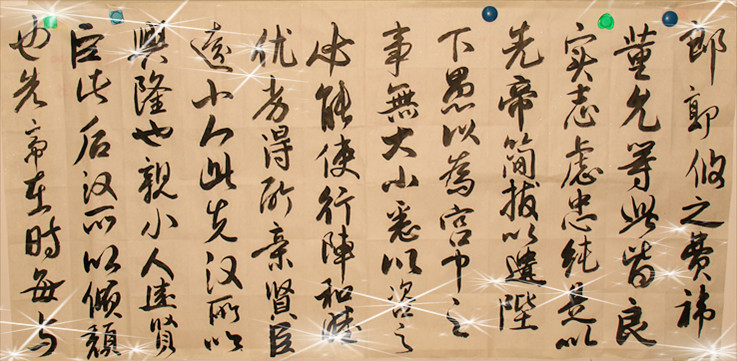 郎郭攸之費祎
董允等此皆良
实志虑忠純是以
先帝简拔以遺陛
下愚以為宫中之
事無大小悉以咨之
必能使行陣和睦
优劣得所亲賢臣
遠小人此先汉所以
興隆也親小人遠賢
臣此后汉所以倾颓
也先帝在時每与